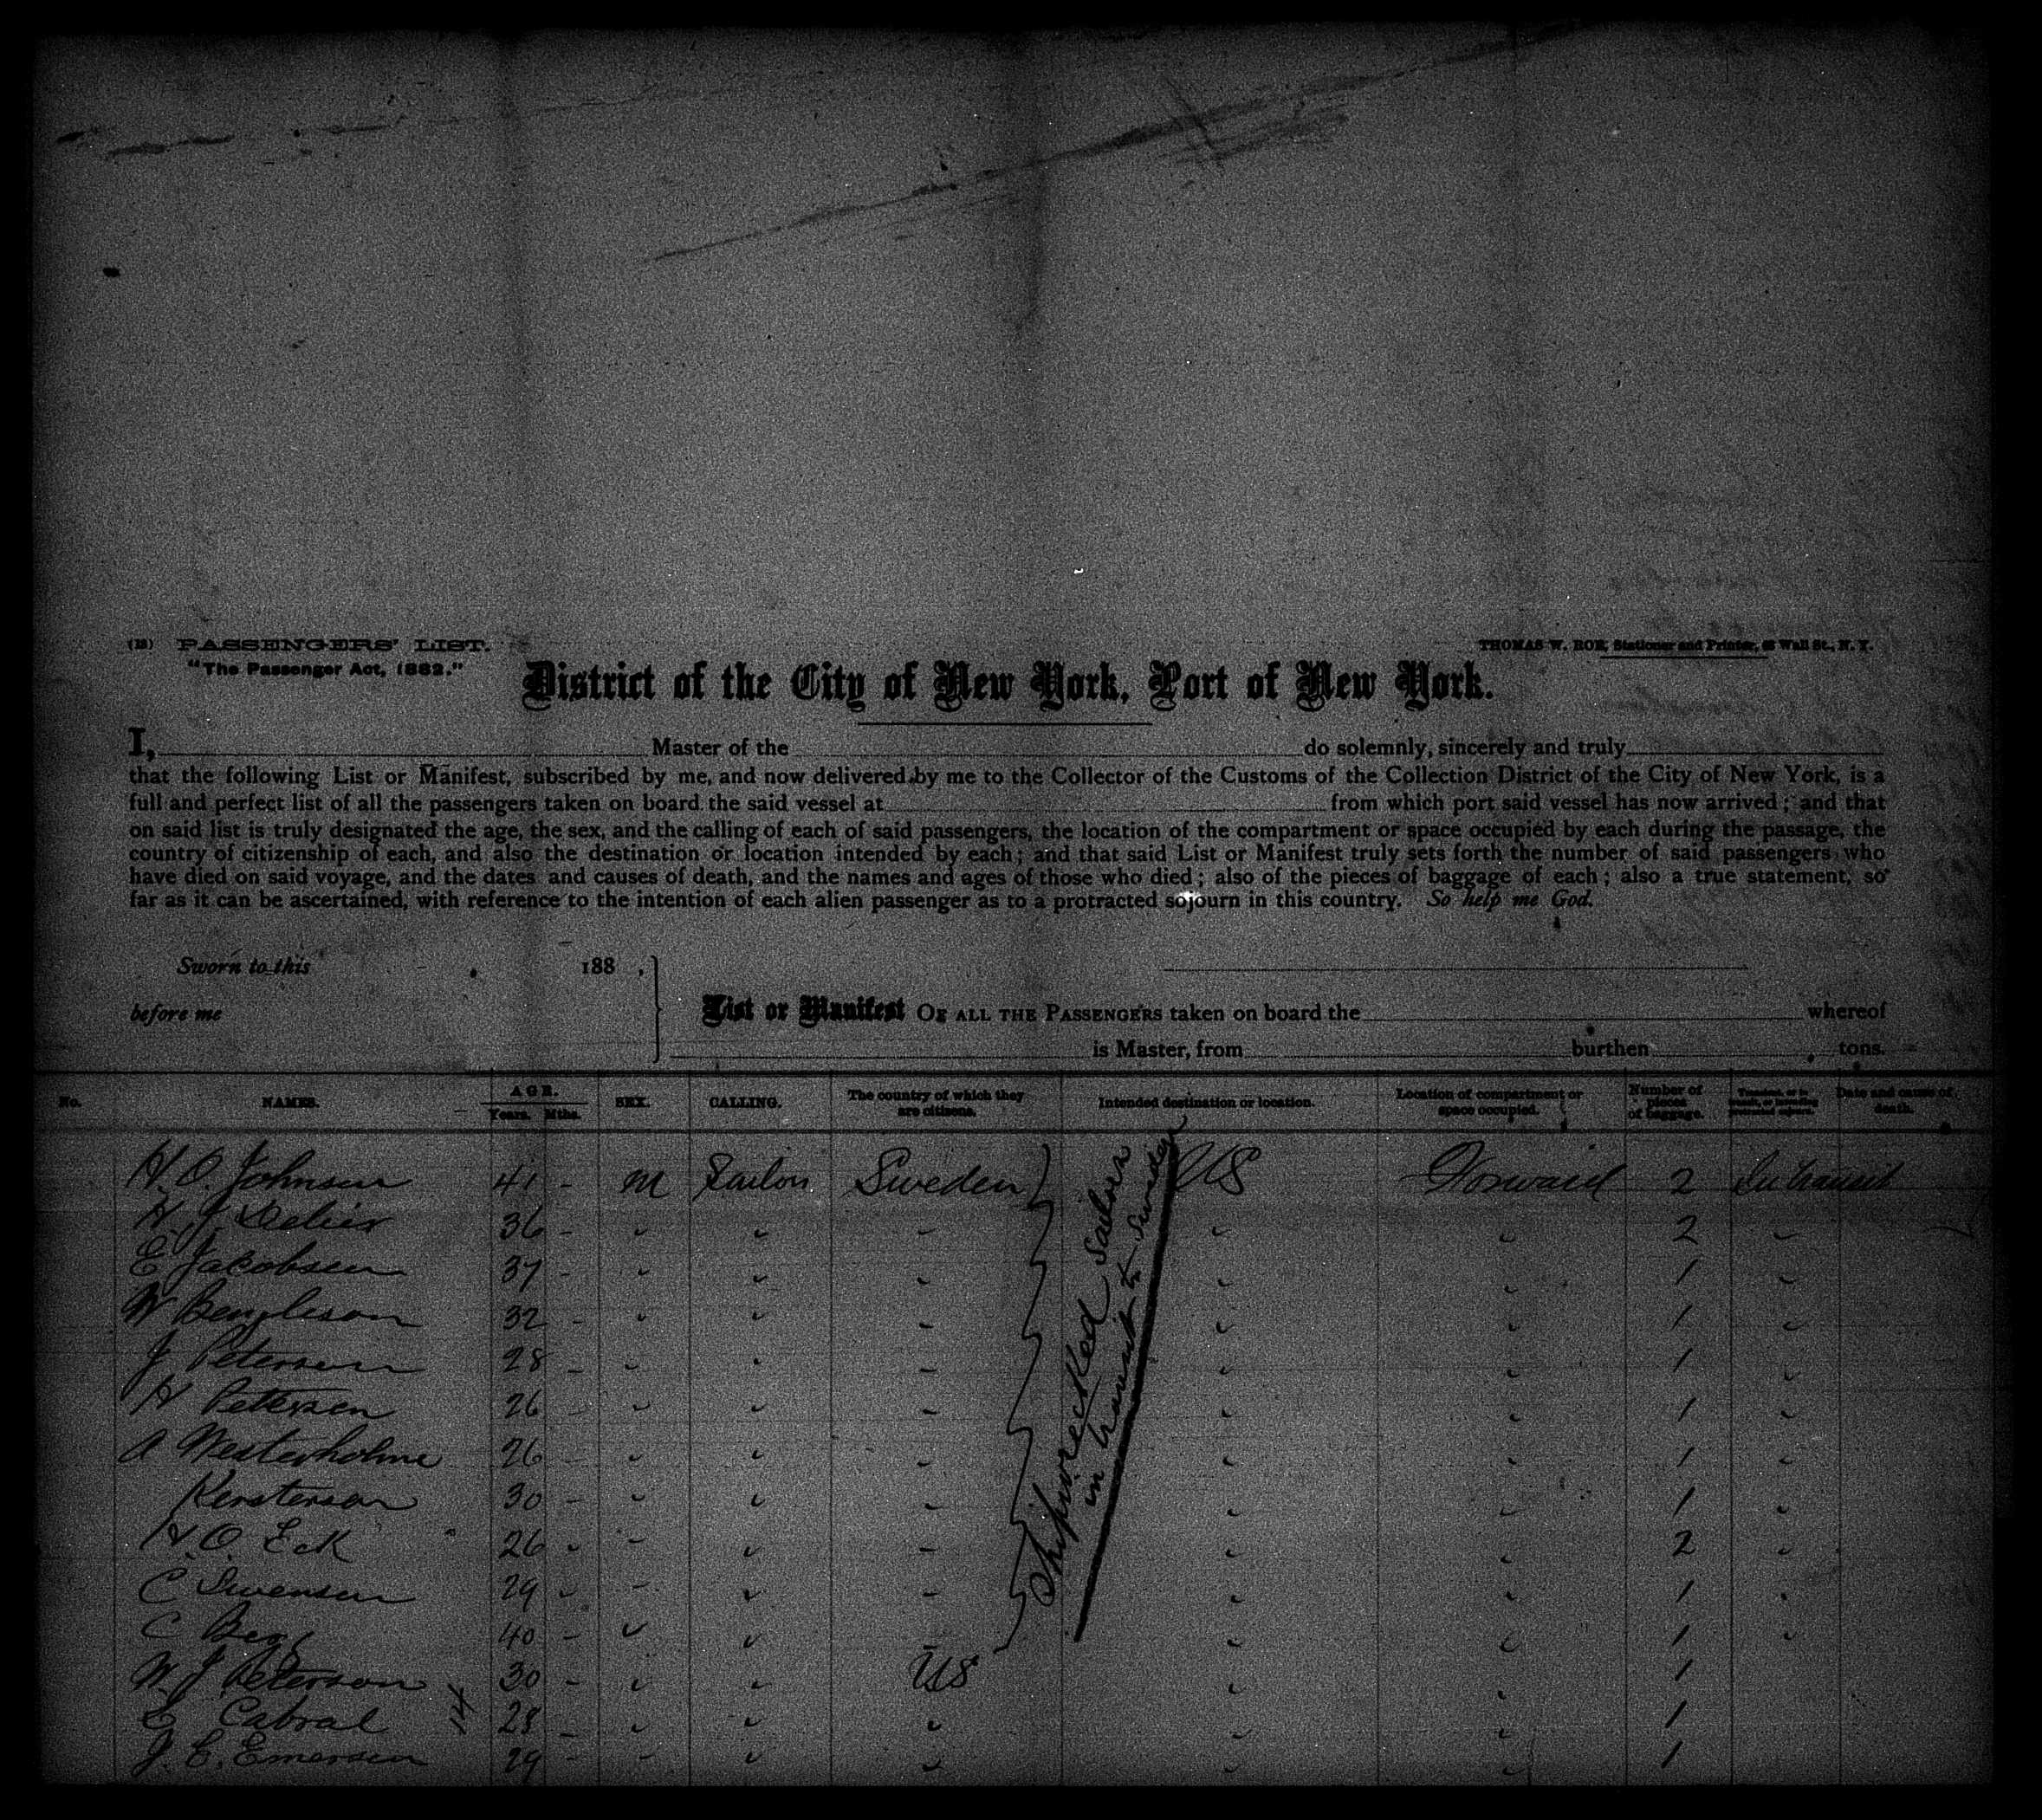 (B) PASSENGERS' LIST.
"The Passenger Act, 1882."
THOMAS W. ROE, Stationer and Printer, Wall St., N. Y.
District of the City of New York, Port of New York.
I, Master of the do solemnly, sincerely and truly
that the following List or Manifest, subscribed by me, and now delivered by me to the Collector of the Customs of the Collection District of the City of New York, is a
full and perfect list of all the passengers taken on board the said vessel at from which port said vessel has now arrived; and that
on said list is truly designated the age, the sex, and the calling of each of said passengers, the location of the compartment or space occupied by each during the passage, the
country of citizenship of each, and also the destination or location intended by each; and that said List or Manifest truly sets forth the number of said passengers who
have died on said voyage, and the dates and causes of death, and the names and ages of those who died; also of the pieces of baggage of each; also a true statement, so
far as it can be ascertained, with reference to the intention of each alien passenger as to a protracted sojourn in this country. So help me God.
Sworn to this 188 ,
before me
List or Manifest OF ALL THE PASSENGERS taken on board the whereof
is Master, from burthen tons.
No. NAMES. AGE. Years. Mths. SEX. CALLING. The country of which they are citizens. Intended destination or location. Location of compartment or space occupied. Number of pieces of baggage. Date and cause of death.
H. O. Johnsen 41 - M Sailor Sweden US Forward 2 In transit
H. J. 36 - 2
E Jacobsen 37 - 1
W Bengleson 32 - 1
J Petersen 28 - 1
H Petersen 26 - 1
A Westerholme 26 - 1
Kersterson 30 - 1
H. O. Eck 26 - 2
C Swensen 29 - 1
C Berg 40 - 1
W. J. Peterson 30 - US 1
E Cabral 28 - 1
J. C. Emerson 29 - 1
Shipwrecked Sailors
in transit to Sweden
14